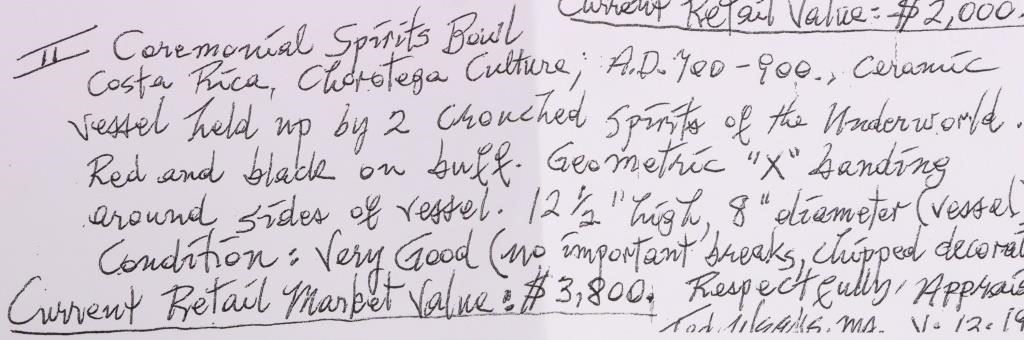 Current Retail Value: $2,000.
II Ceremonial Spirits Bowl
Costa Rica, Chorotega Culture; A.D. 700-900., ceramic
vessel held up by 2 crouched spirits of the Underworld.
Red and black on buff. Geometric "X" banding
around sides of vessel. 12 1/2" high, 8" diameter (vessel)
Condition: Very Good (no important breaks, chipped decorat
Current Retail Market Value: $3,800. Respectfully, Apprais
V. 12. 19